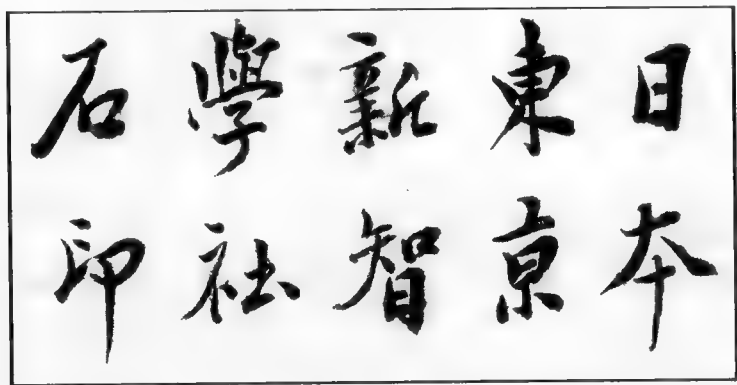 日本
東京
新智
學社
石印